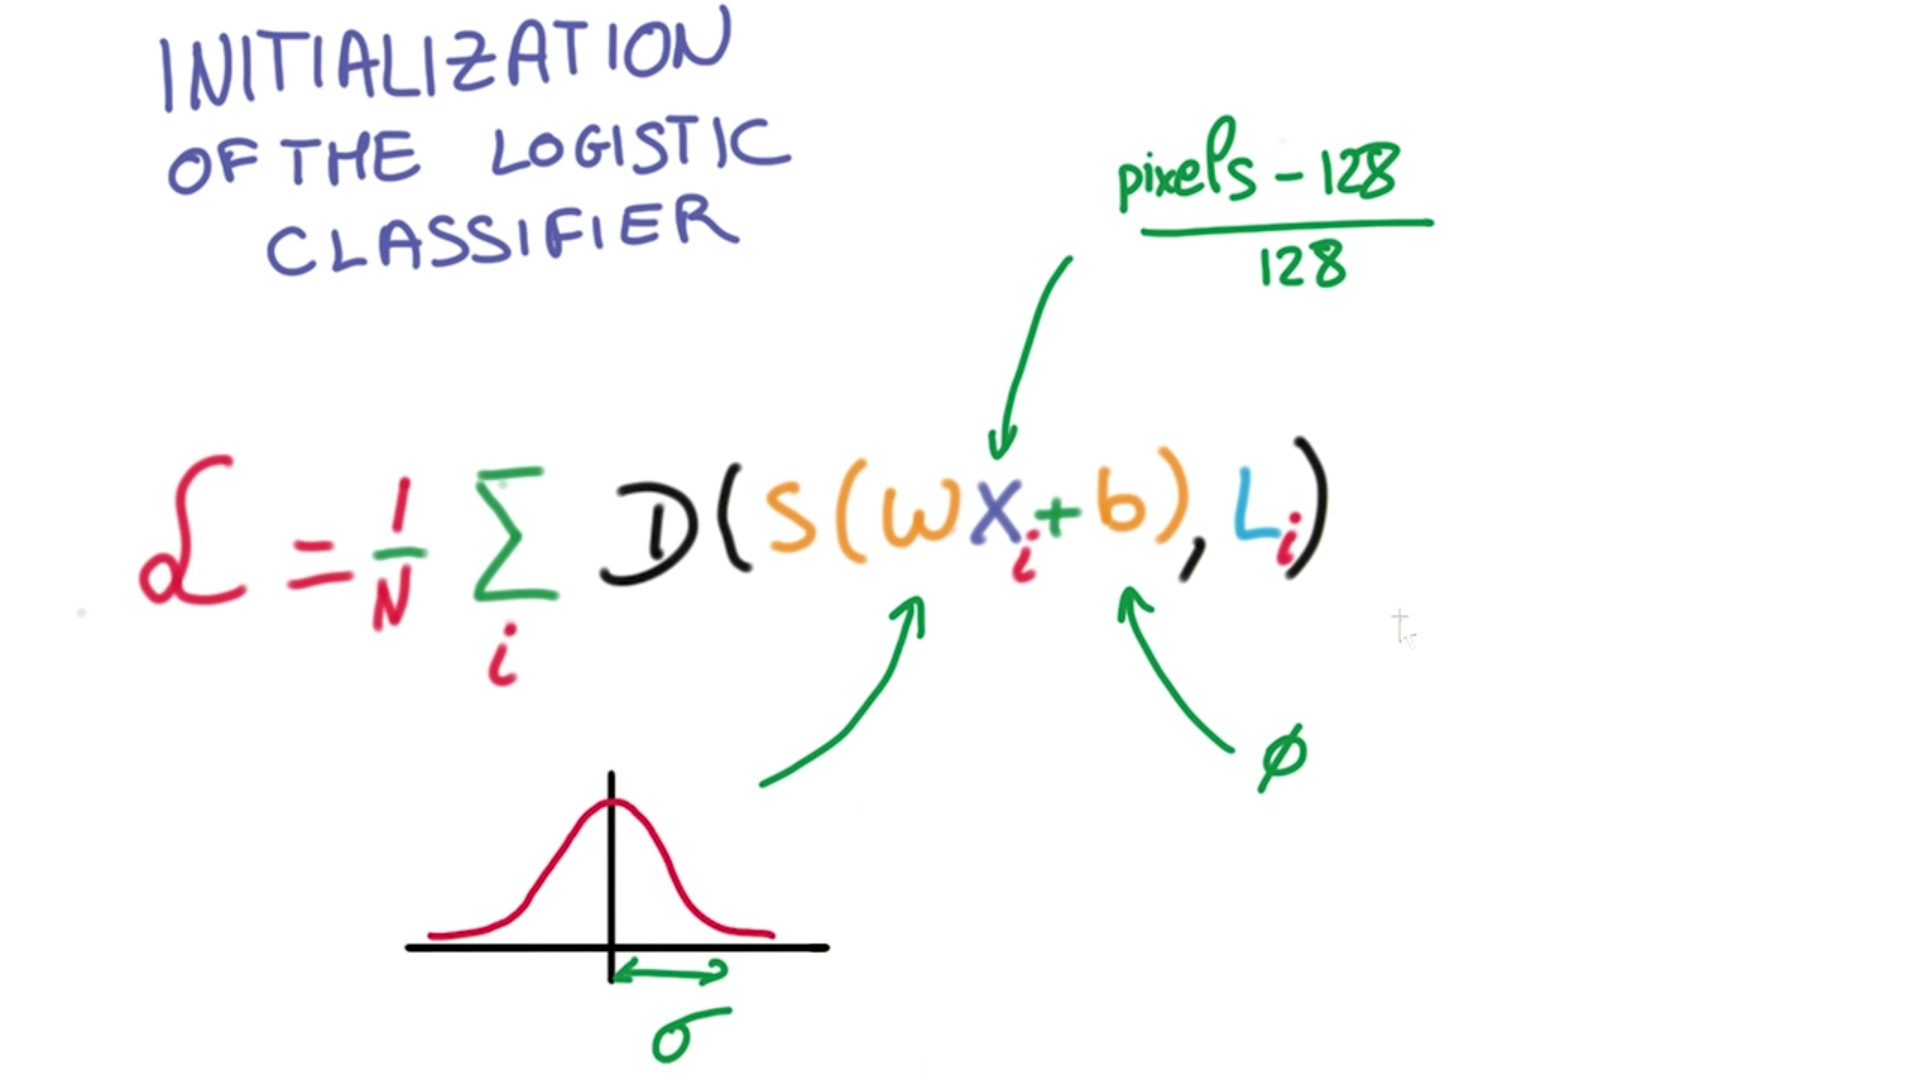 INITIALIZATION
OF THE LOGISTIC
CLASSIFIER
pixels - 128
128
ℒ = 1/N Σ_i D(S(wx_i + b), L_i)
ϕ
σ